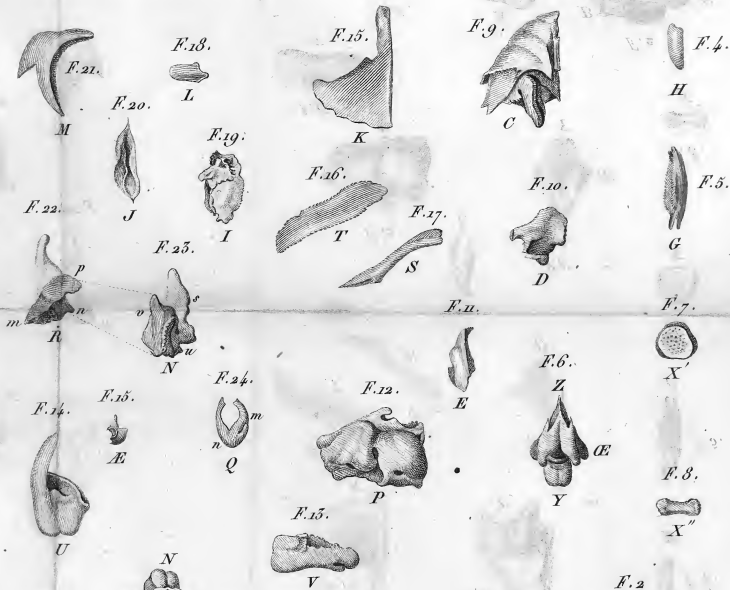 F.21.
M
F.18.
L
F.15.
K
F.9.
C
F.4.
H
F.20.
J
F.19.
I
F.16.
T
F.17.
S
F.10.
D
F.5.
G
F.22.
p
m
n
R
F.23.
o
s
u
N
F.11.
E
F.7.
X'
F.14.
U
F.15.
Æ
F.24.
m
n
Q
F.12.
P
F.6.
Z
Œ
Y
F.8.
X"
F.13.
V
N
F.2